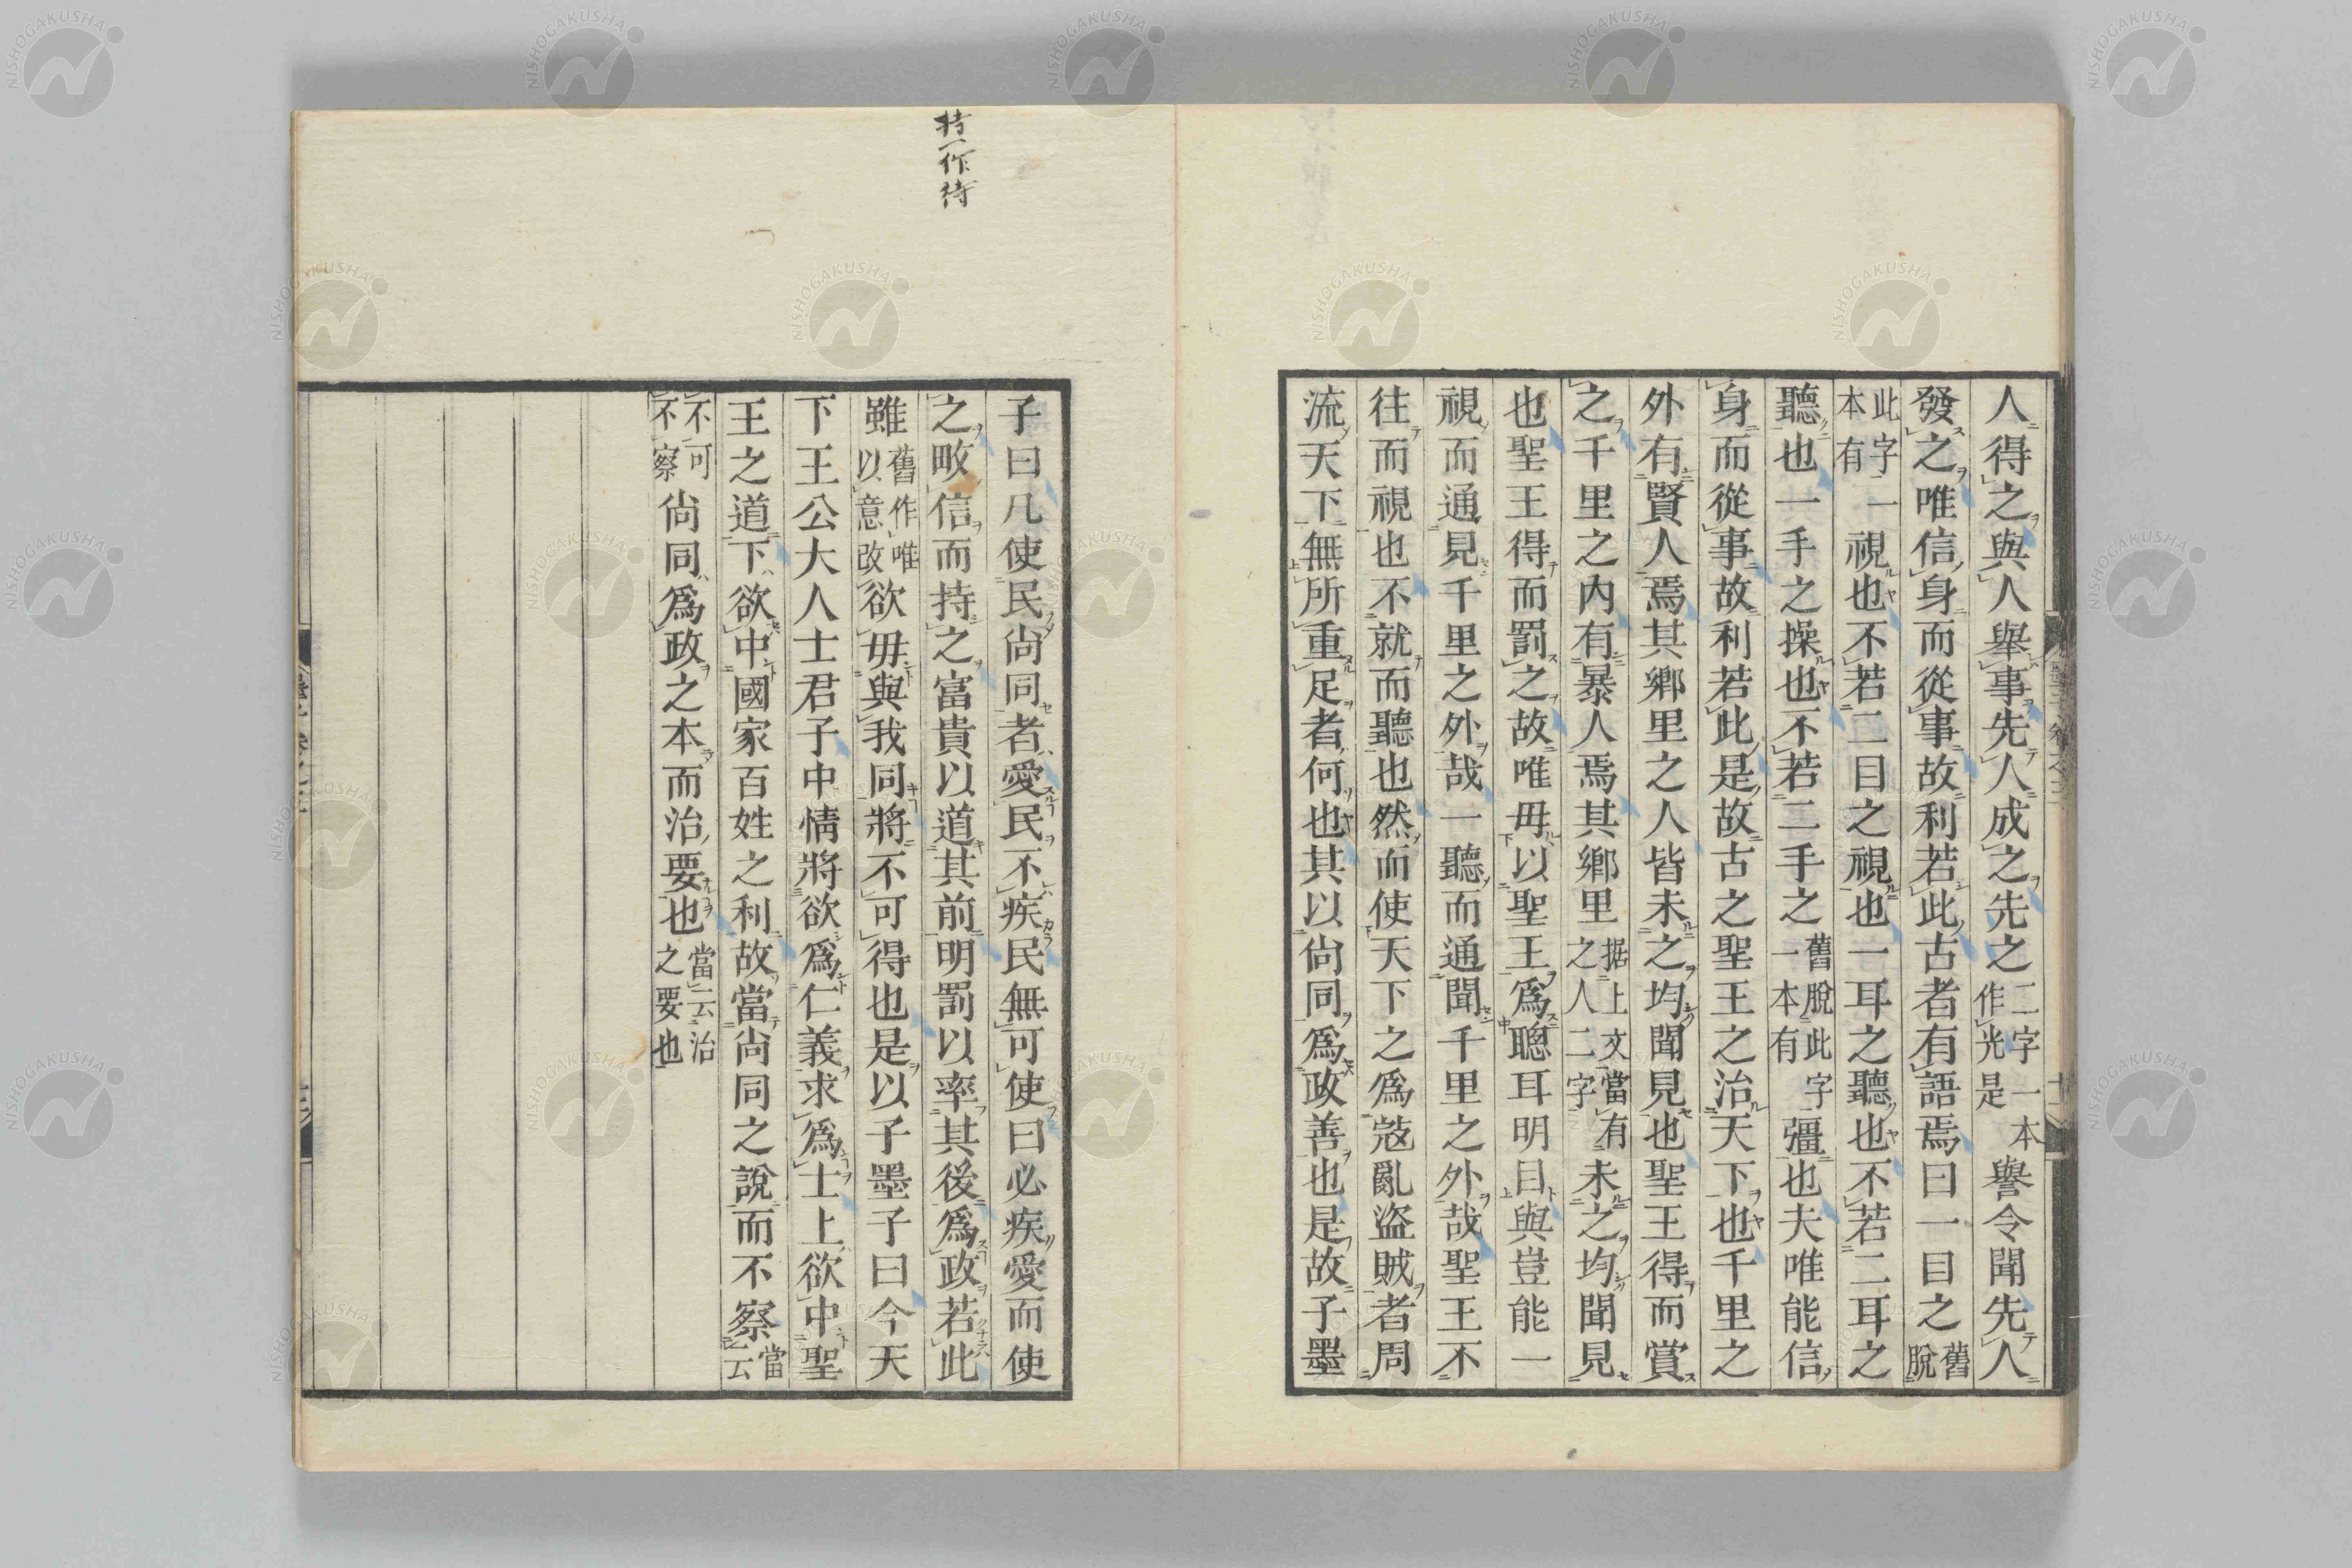 人得之與人擧事先人成之先之二字一本作光是譽令聞先人
發之唯信身而從事故利若此古者有語焉曰一目之舊脫
此字本有一視也不若二目之視也一耳之聽也不若二耳之
聽也一手之操也不若二手之舊脫此字一本有彊也夫唯能信
身而從事故利若此是故古之聖王之治天下也千里之
外有賢人焉其鄉里之人皆未之均聞見也聖王得而賞
之千里之內有暴人焉其鄉里据上文當有之人二字未之均聞見
也聖王得而罰之故唯毋以聖王爲聰耳明目與豈能一
視而通見千里之外哉一聽而通聞千里之外哉聖王不
往而視也不就而聽也然而使天下之爲寇亂盜賊者周
流天下無所重足者何也其以尙同爲政善也是故子墨
子曰凡使民尙同者愛民不疾民無可使曰必疾愛而使
之畋信而持之富貴以道其前明罰以率其後爲政若此
雖舊作唯以意改欲毋與我同將不可得也是以子墨子曰今天
下王公大人士君子中情將欲爲仁義求爲士上欲中聖
王之道下欲中國家百姓之利故當尙同之說而不察當云
不可不察尙同爲政之本而治要也當云治之要也
持一作待
NISHOGAKUSHA